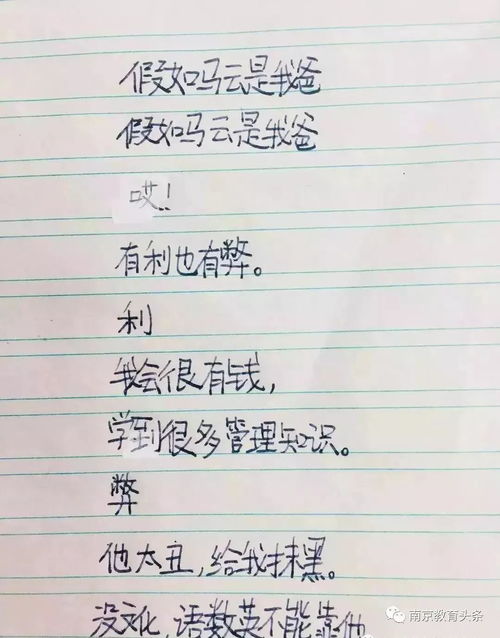 假如吗云是我爸
假如吗云是我爸
哎!!
有利也有弊。
利
我会很有钱,
学到很多管理知识。
弊
他太丑,给我抹黑。
没文化,语数英不能靠他
南京教育头条